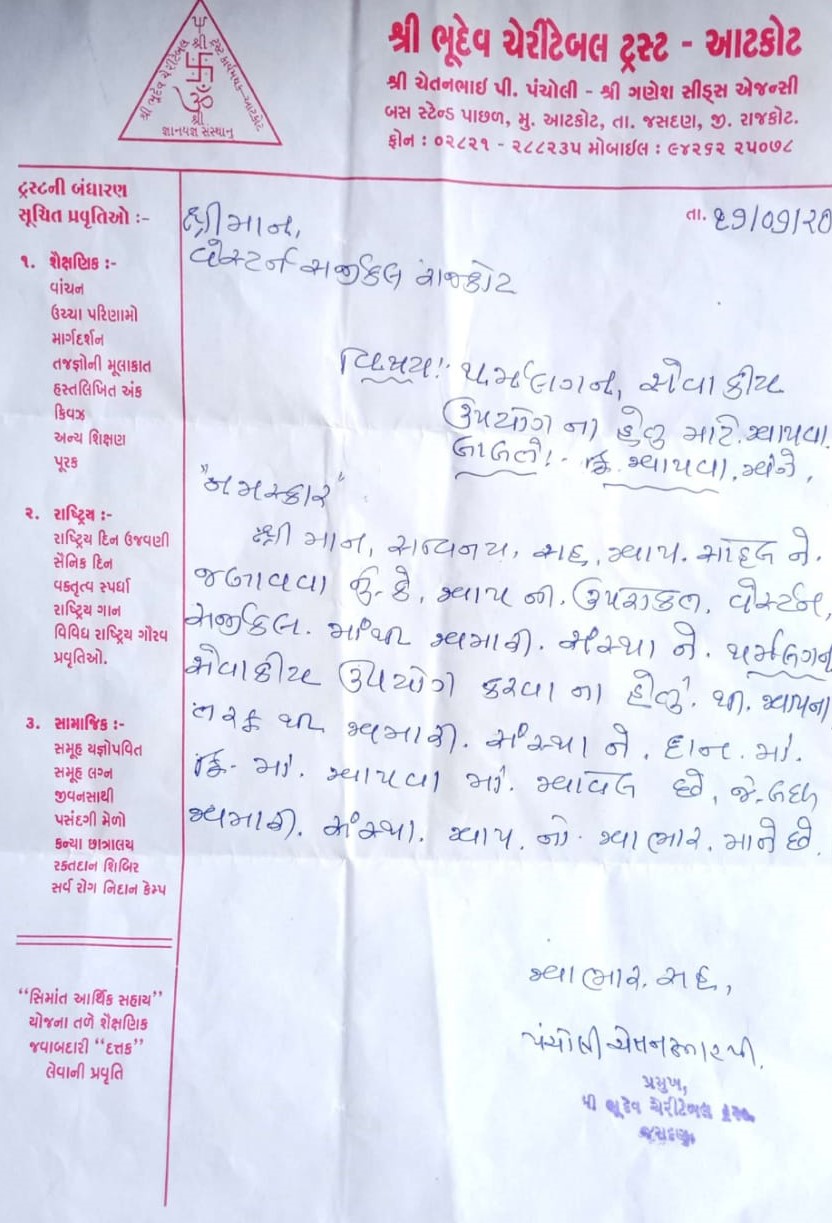 શ્રી ભૂદેવ ચેરીટેબલ ટ્રસ્ટ કાર્યમથક-આટકોટ
શ્રી
શ્રી
જ્ઞાનયજ્ઞ સંસ્થાનુ
શ્રી ભૂદેવ ચેરીટેબલ ટ્રસ્ટ - આટકોટ
શ્રી ચેતનભાઈ પી. પંચોલી - શ્રી ગણેશ સીડ્સ એજન્સી
બસ સ્ટેન્ડ પાછળ, મુ. આટકોટ, તા. જસદણ, જી. રાજકોટ.
ફોન : ૦૨૮૨૧ - ૨૮૮૨૩૫ મોબાઈલ : ૯૪૨૬૨ ૨૫૦૭૮
ટ્રસ્ટની બંધારણ
સૂચિત પ્રવૃતિઓ :-
૧. શૈક્ષણિક :-
વાંચન
ઉચ્ચા પરિણામો
માર્ગદર્શન
તજજ્ઞોની મૂલાકાત
હસ્તલિખિત અંક
ક્વિઝ
અન્ય શિક્ષણ
પૂરક
૨. રાષ્ટ્રિય :-
રાષ્ટ્રિય દિન ઉજવણી
સૈનિક દિન
વકતૃત્વ સ્પર્ધા
રાષ્ટ્રિય ગાન
વિવિધ રાષ્ટ્રિય ગૌરવ
પ્રવૃતિઓ.
૩. સામાજિક :-
સમૂહ યજ્ઞોપવિત
સમૂહ લગ્ન
જીવનસાથી
પસંદગી મેળો
કન્યા છાત્રાલય
રક્તદાન શિબિર
સર્વ રોગ નિદાન કેમ્પ
"સિમાંત આર્થિક સહાય"
યોજના તળે શૈક્ષણિક
જવાબદારી "દત્તક"
લેવાની પ્રવૃતિ
તા.
શ્રીમાન,
વેસ્ટર્ન સર્જીકલ રાજકોટ
વિષય:- થર્મલગન, સેવાકીય
ઉપયોગ ના હેતુ માટે આપવા
બાબતે:- આપવા અંગે,
"નમસ્કાર"
શ્રી માન, સવિનય, સહ, આપ. સાહેબ ને.
જણાવવા નું કે, આપ ની. ઉપરોકત, વેસ્ટર્ન,
સર્જીકલ. માંથી અમારી. સંસ્થા ને. થર્મલગન
સેવાકીય ઉપયોગ કરવા ના હેતું. થી. આપના
તરફ થી અમારી. સંસ્થા ને. દાન. માં.
માં. આપવા માં. આવેલ છે, જે-બદલ
અમારી. સંસ્થા. આપ. નો. આભાર. માને છે.
આભાર. સહ,
પંચોલી ચેતનકુમાર પી.
પ્રમુખ,
શ્રી ભૂદેવ ચેરીટેબલ ટ્રસ્ટ
જસદણ